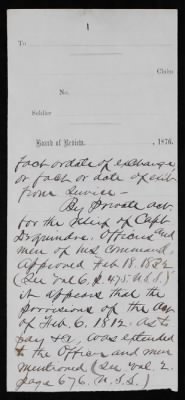 1
To
Claim
No.
Soldier
Board of Review. , 1876.
fact or date of exchange,
or fact or date of exit
from service —
By private act
for the relief of Capt
Dequindre, Officers and
men of his command,
approved Feb. 18. 1832
(See vol 6, p. 475. U.S.S.)
it appears that the
provisions of the act
of Feb. 6, 1812. as to
pay &c, was extended
to the Officers and men
mentioned (See vol. 2.
page 676. U.S.S.)